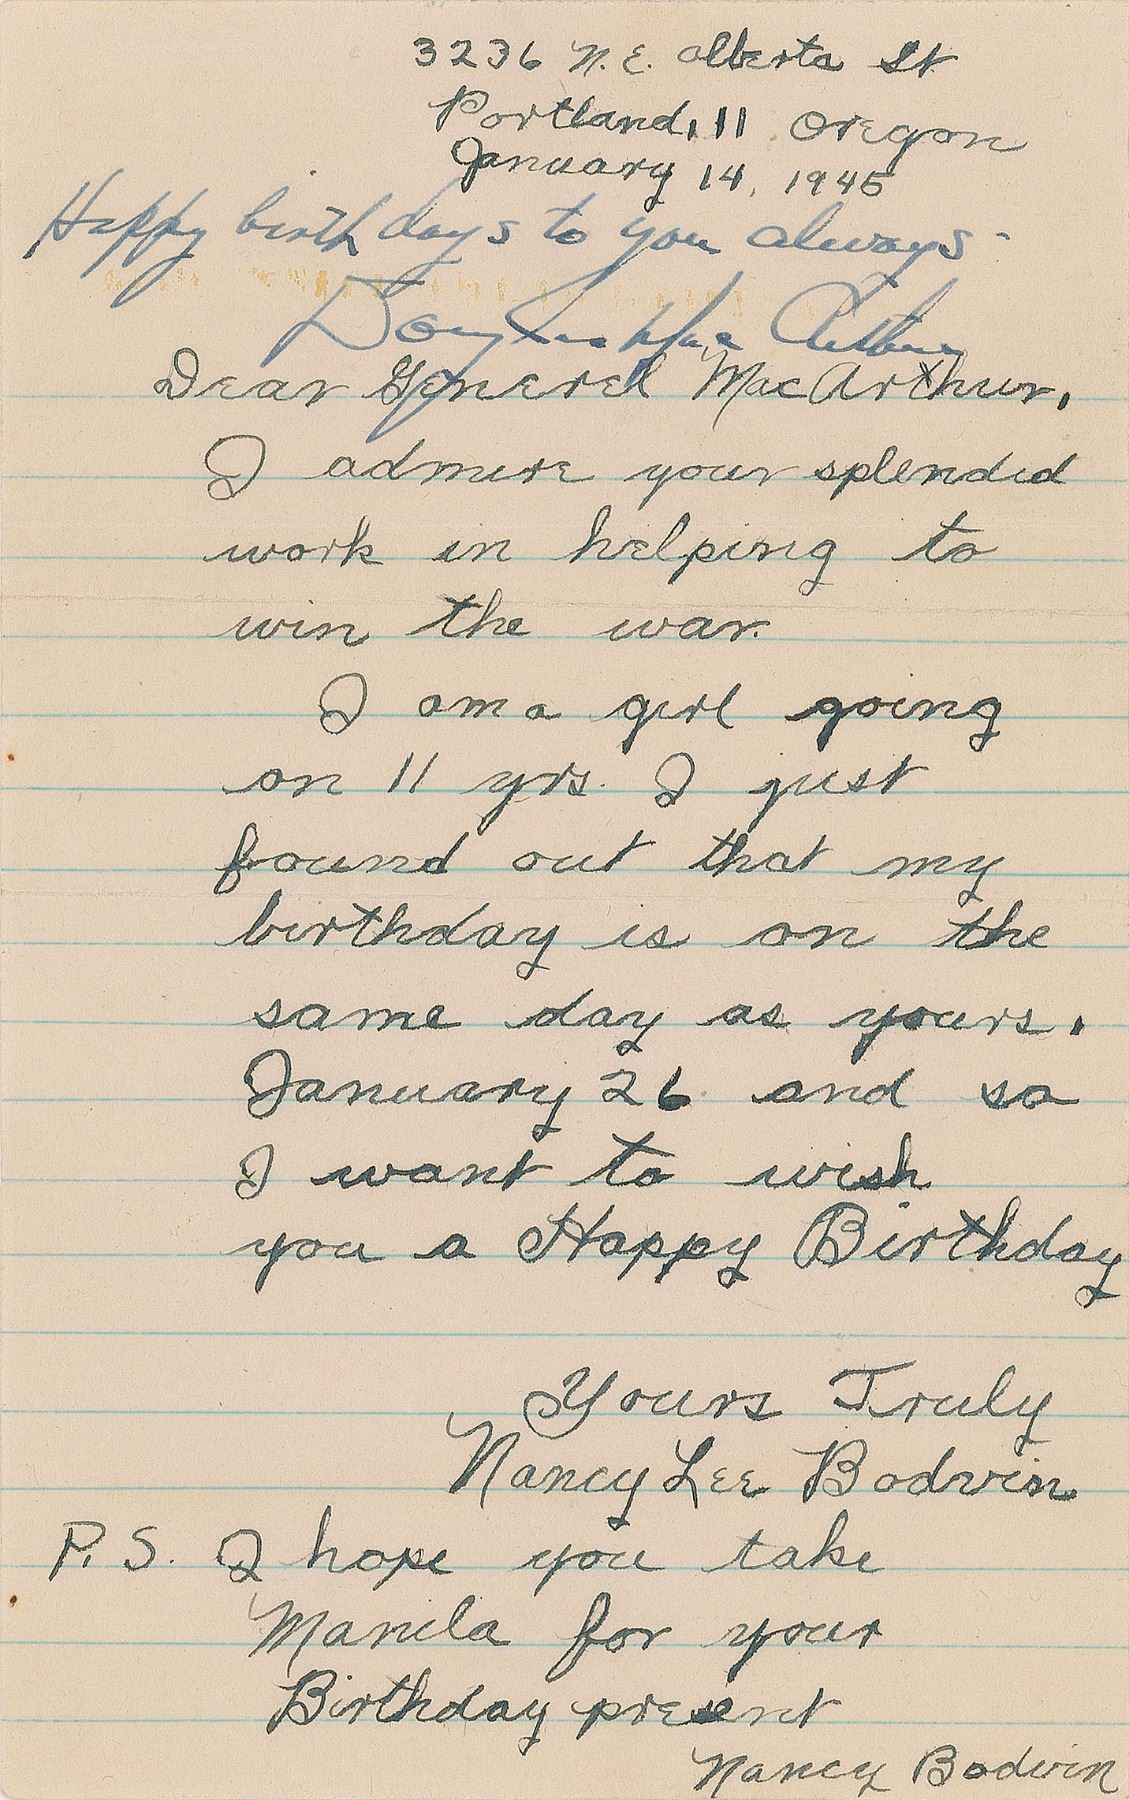 3236 N.E. Alberta St
Portland, 11 Oregon
January 14, 1945
Happy birthdays to you always -
Douglas MacArthur
Dear Generel MacArthur,
I admire your splendid
work in helping to
win the war.
I am a girl going
on 11 yrs. I just
found out that my
birthday is on the
same day as yours.
January 26 and so
I want to wish
you a Happy Birthday
Yours Truly
Nancy Lee Bodvin
P. S. I hope you take
Manila for your
Birthday present
Nancy Bodvin